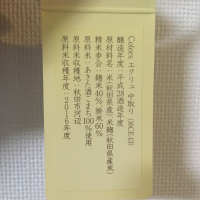 Colors エクリュ 中取り (2SCE-12)
醸造年度：平成28酒造年度
原材料名：米（秋田県産）、米麹（秋田県産米）
精米歩合：麹米40％、掛米60％
原料米：あきた酒こまち100％使用
原料米収穫地：秋田市河辺
原料米収穫年度：2016年度